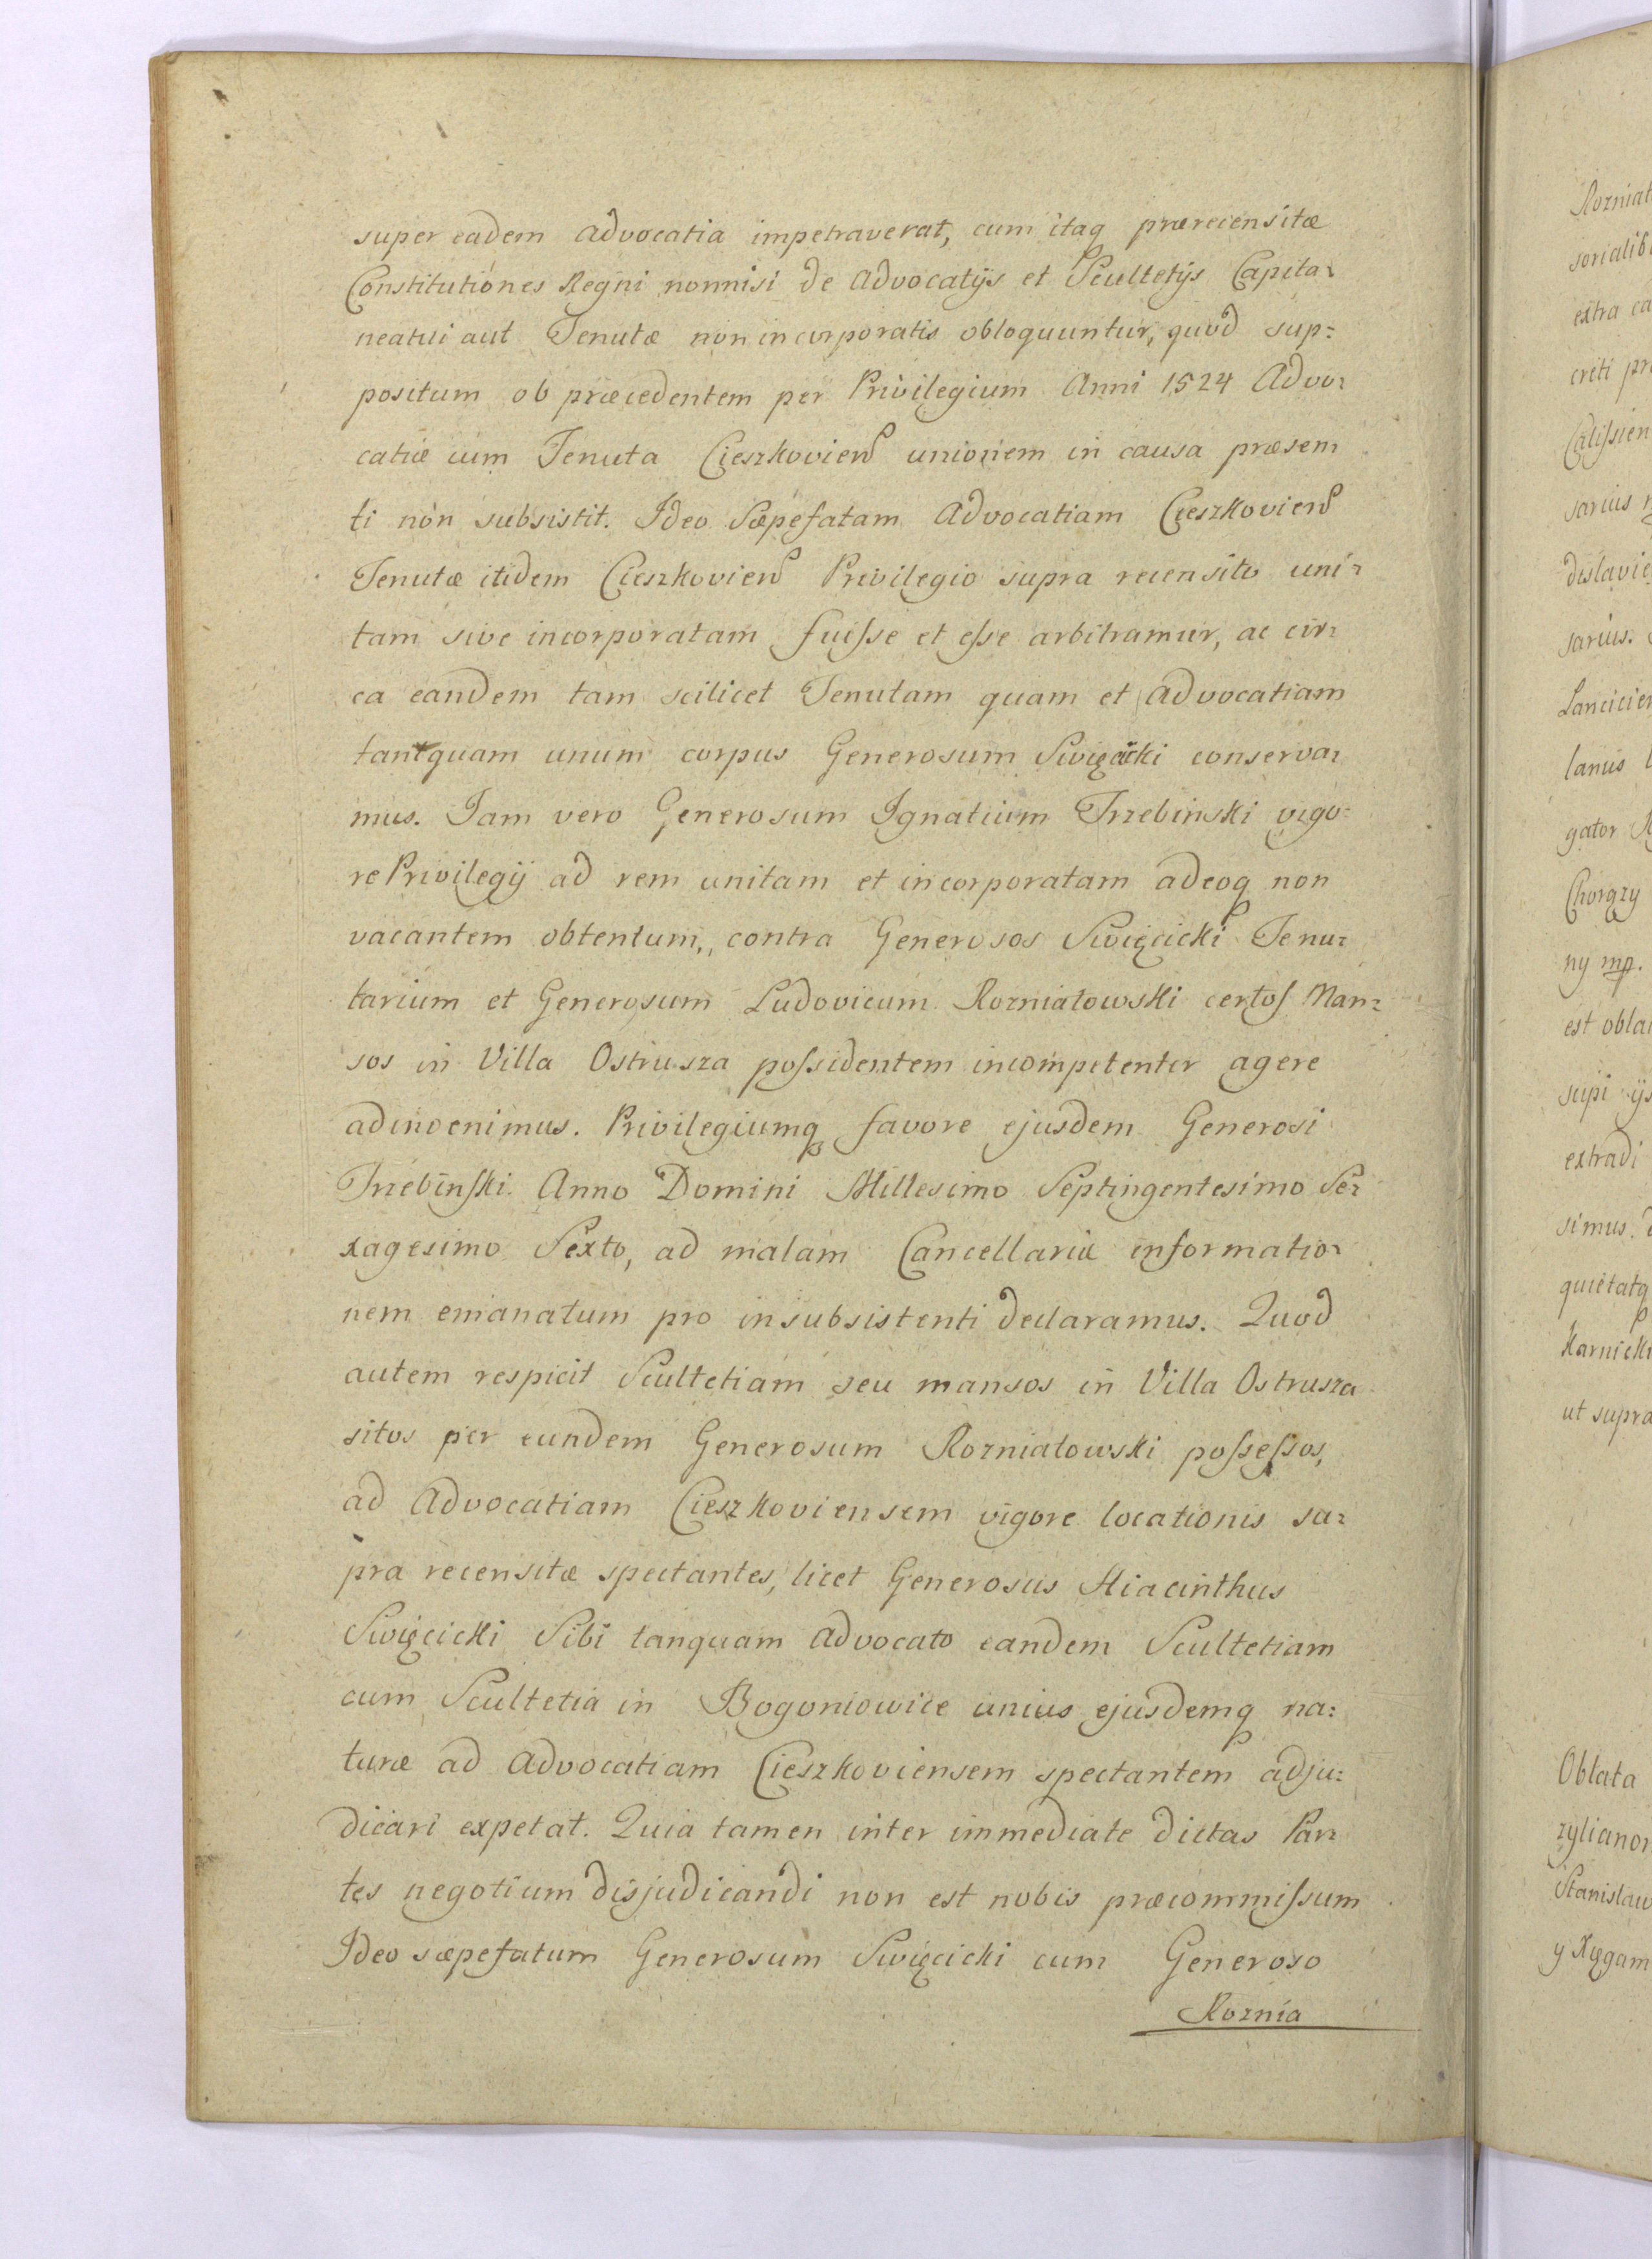 super eadem Advocatia impetraverat, cum itaq prærecensitæ
Constitutiones Regni nonnisi de Advocatijs et Scultetijs Capita=
neatui aut Tenutæ non incorporatis obloquuntur, quod sup=
positum ob præcedentem per Privilegium Anni 1524 Advo=
catiæ cum Tenuta Cieszkovien unionem in causa præsen
ti non subsistit. Ideo Sæpefatam Advocatiam Cieszkovien
Tenutæ itidem Cieszkovien Privilegio supra recensito uni=
tam sive incorporatam fuisse et esse arbitramur, ac cir=
ca eandem tam scilicet Tenutam quam et Advocatiam
tanquam unum corpus Generosum Swięcicki conserva=
mus. Iam vero Generosum Ignatium Trzebinski vigo=
re Privilegij ad rem unitam et incorporatam adeoq non
vacantem obtentum, contra Generosos Swięcicki Tenu=
tarium et Generosum Ludovicum Rozniatowski certos Man=
sos in Villa Ostrusza possidentem incompetenter agere
adinvenimus. Privilegiumq favore ejusdem Generosi
Trzebinski Anno Domini Millesimo Septingentesimo Se=
xagesimo Sexto, ad malam Cancellariæ informatio=
nem emanatum pro insubsistenti declaramus. Quod
autem respicit Scultetiam seu mansos in Villa Ostrusza
sitos per eundem Generosum Rozniatowski possessos,
ad Advocatiam Cieszkoviensem vigore locationis su=
pra recensitæ spectantes, licet Generosus Hiacinthus
Swięcicki Sibi tanquam Advocato eandem Scultetiam
cum Scultetia in Bogoniowice unius ejusdemq na=
turæ ad Advocatiam Cieszkoviensem spectantem adju=
dicari expetat. Quia tamen inter immediate dictas Par=
tes negotium disjudicandi non est nobis præcommissum
Ideo sæpefatum Generosum Swięcicki cum Generoso
Roznia
Rozniat
sorialib
extra ca
creti pr
Calissien
sarius
dislavie
sarius.
Lancicien
lanus
gator
Chorązy
ny mp.
est obla
supi ijs
extradi
simus.
quietatq
Karnicki
ut supra
Oblata
zylianor
Stanislaw
y Xięgam